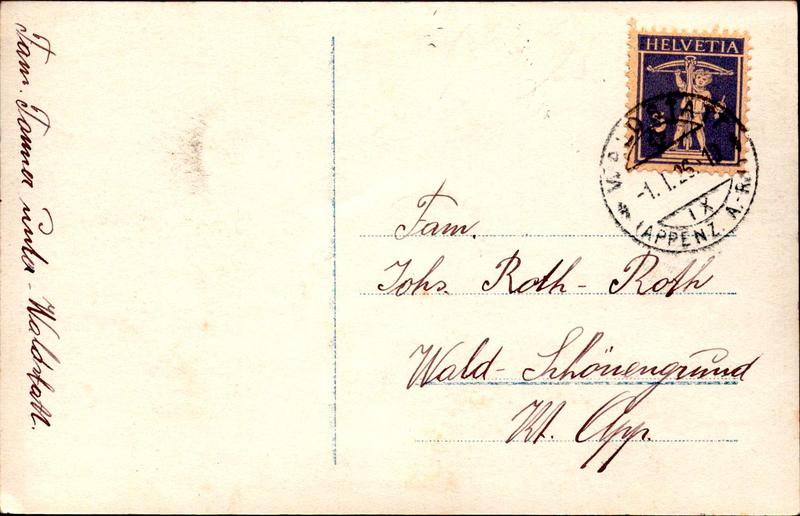 Fam. Tanner unter-Waldstatt.
HELVETIA
WALDSTATT
-1.I.25.
IX
(APPENZ. A.-RH.)
Fam.
Johs. Roth-Roth
Wald-Schönengrund
Kt. App.